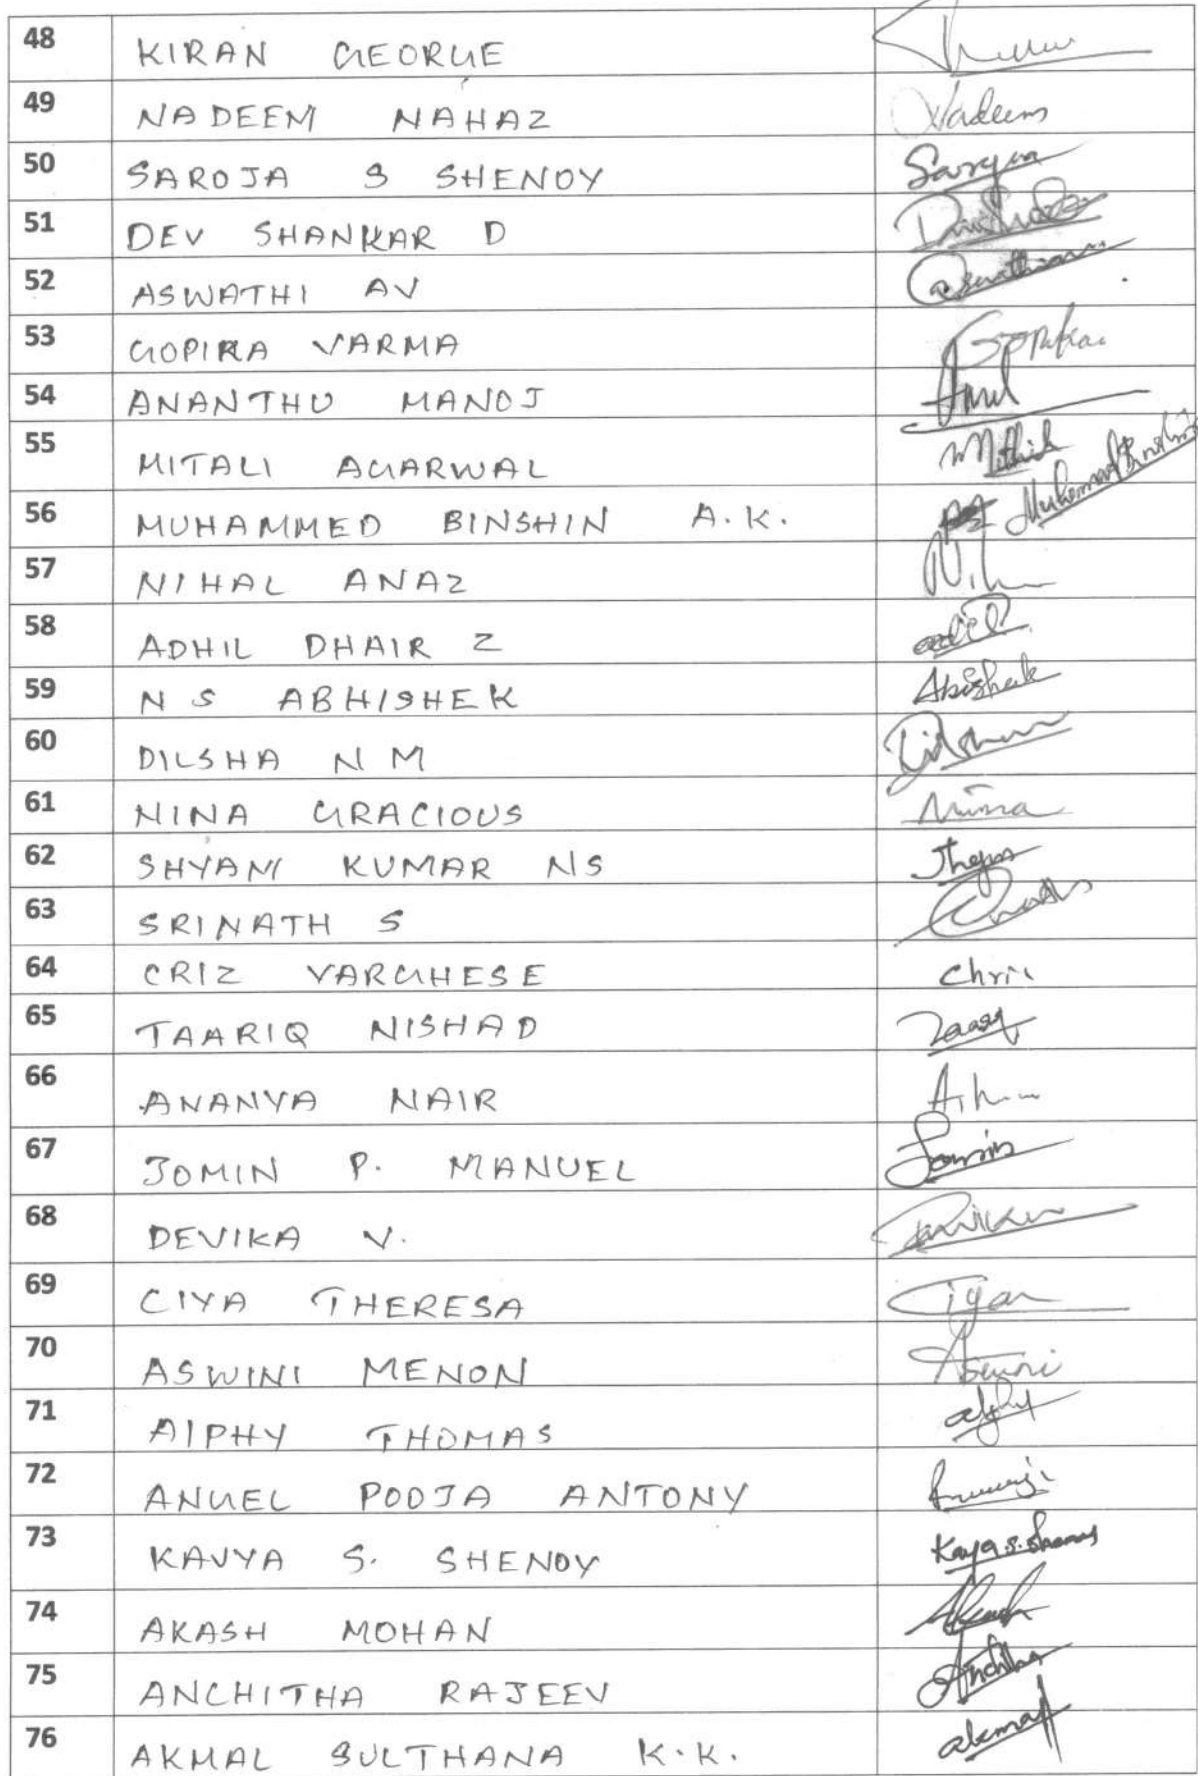 48 KIRAN GEORGE
49 NADEEM NAHAZ Nadeem
50 SAROJA S SHENOY Saroja
51 DEV SHANKAR D
52 ASWATHI AV
53 GOPIKA VARMA Gopika
54 ANANTHU MANOJ
55 MITALI AGARWAL
56 MUHAMMED BINSHIN A.K.
57 NIHAL ANAZ
58 ADHIL DHAIR Z
59 N S ABHISHEK Abishek
60 DILSHA N M
61 NINA GRACIOUS Nina
62 SHYAM KUMAR NS
63 SRINATH S
64 CRIZ VARGHESE
65 TAARIQ NISHAD
66 ANANYA NAIR
67 JOMIN P. MANUEL Jomin
68 DEVIKA V.
69 CIYA THERESA
70 ASWINI MENON Aswini
71 AlPHY THOMAS alphy
72 ANGEL POOJA ANTONY
73 KAVYA S. SHENOY
74 AKASH MOHAN Akash
75 ANCHITHA RAJEEV
76 AKMAL SULTHANA K.K. akmal